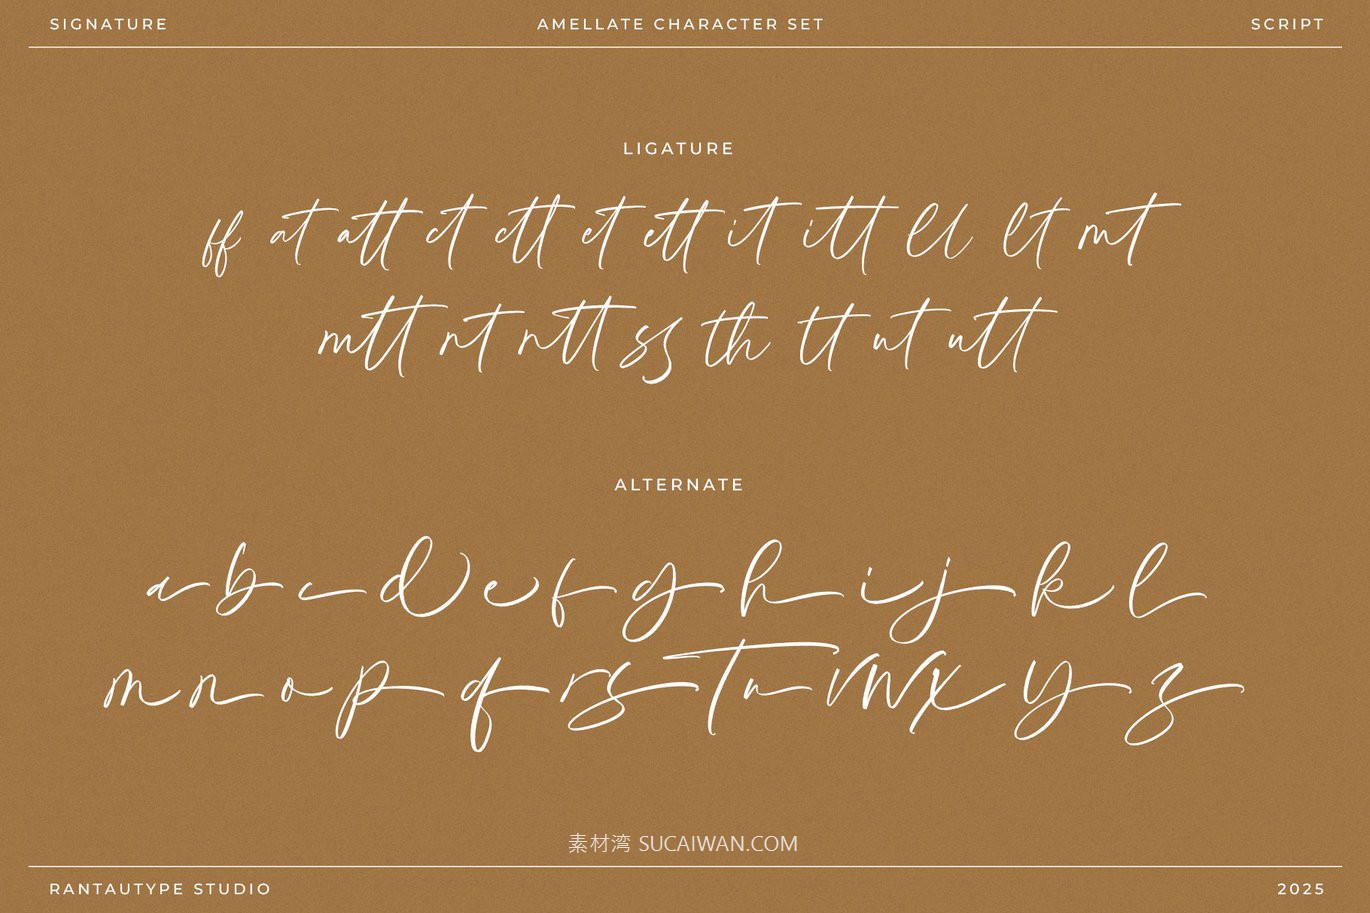 SIGNATURE AMELLATE CHARACTER SET SCRIPT
LIGATURE
ff at att ct ctt et ett it itt ll lt mt
mtt nt ntt ss th tt ut utt
ALTERNATE
a b c d e f g h i j k l
m n o p q r s t u v w x y z
素材湾 SUCAIWAN.COM
RANTAUTYPE STUDIO 2025